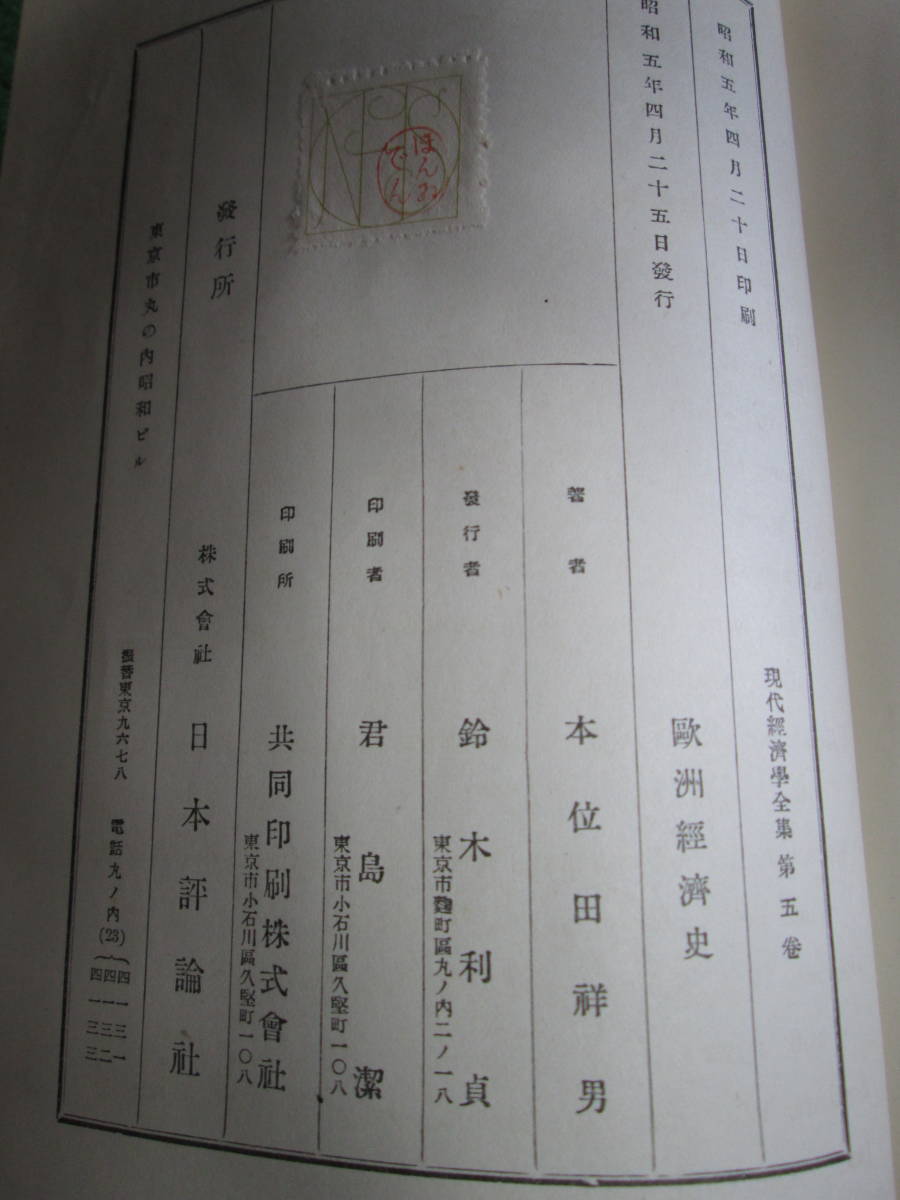 昭和五年四月二十日印刷
昭和五年四月二十五日發行
現代經濟學全集 第五卷
歐洲經濟史
著者 本位田祥男
發行者 鈴木利貞
東京市麴町區丸ノ内二ノ一八
印刷者 君島潔
東京市小石川區久堅町一〇八
印刷所 共同印刷株式會社
東京市小石川區久堅町一〇八
ほんゐ
でん
發行所 株式會社 日本評論社
東京市丸の内昭和ビル
振替東京九六七八 電話九ノ内(23)
四一三一
四一三二
四一三三